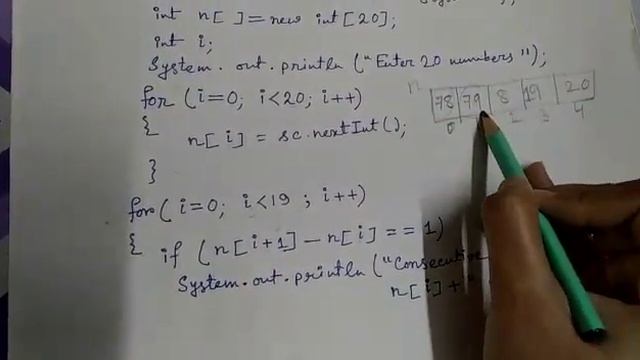 int n[ ]=new int[20];
int i;
System.out.println("Enter 20 numbers");
for (i=0; i<20; i++)
{ n[i] = sc.nextInt();
}
for( i=0; i<19 ; i++)
{ if (n[i+1]-n[i]==1)
System.out.println("Consecutive
n[i]+"
n 78 79 8 19 20
0 2 3 4